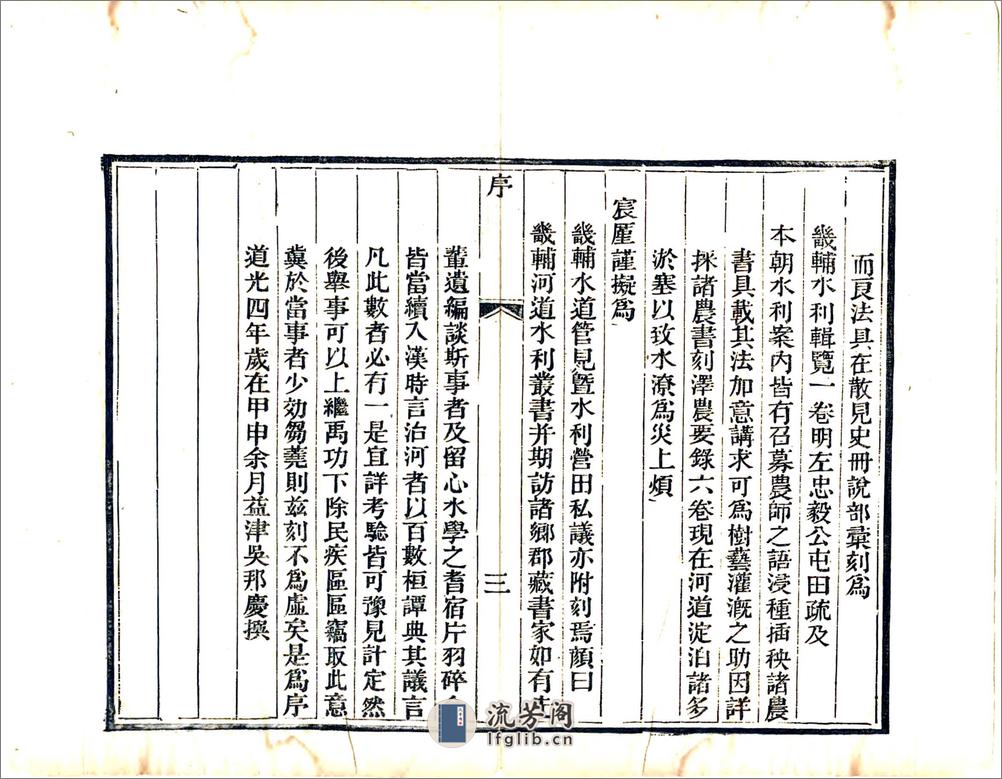 而良法具在散見史冊說部彙刻爲
畿輔水利輯覽一卷明左忠毅公屯田疏及
本朝水利案內皆有召募農師之語浸種插秧諸農
書具載其法加意講求可爲樹藝灌漑之助因詳
採諸農書刻澤農要錄六卷現在河道淀泊諸多
淤塞以致水潦爲災上煩
宸厪謹擬爲
畿輔水道管見曁水利營田私議亦附刻焉顏曰
畿輔河道水利叢書并期訪諸鄉郡藏書家如有
序
三
叢遺編談斯事者及留心水學之耆宿片羽碎
皆當續入漢時言治河者以百數桓譚典其議言
凡此數者必有一是宜詳考驗皆可豫見計定然
後舉事可以上繼禹功下除民疾區區竊取此意
冀於當事者少効芻蕘則茲刻不爲虛矣是爲序
道光四年歲在甲申余月益津吳邦慶撰
流芳阁
lfglib.cn